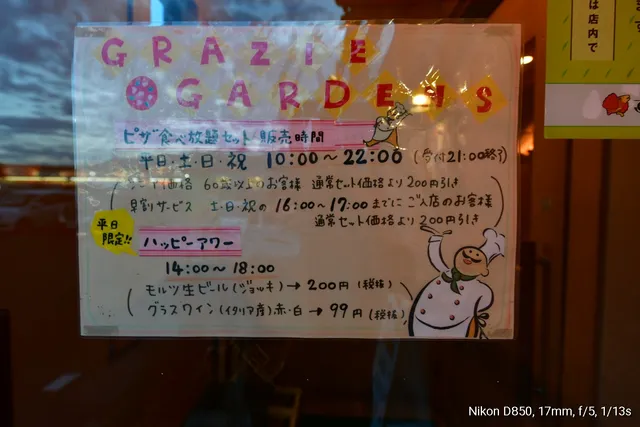 GRAZIE
GARDENS
ピザ食べ放題セット販売時間
平日・土・日・祝 10:00～22:00 (受付21:00終了)
シニア価格 60歳以上のお客様 通常セット価格より200円引き
早割サービス 土・日・祝の16:00～17:00までにご入店のお客様
通常セット価格より200円引き
平日
限定!!
ハッピーアワー
14:00～18:00
モルツ生ビール(ジョッキ)→200円(税抜)
グラスワイン(イタリア産)赤・白→99円(税抜)
は店内で
Nikon D850, 17mm, f/5, 1/13s